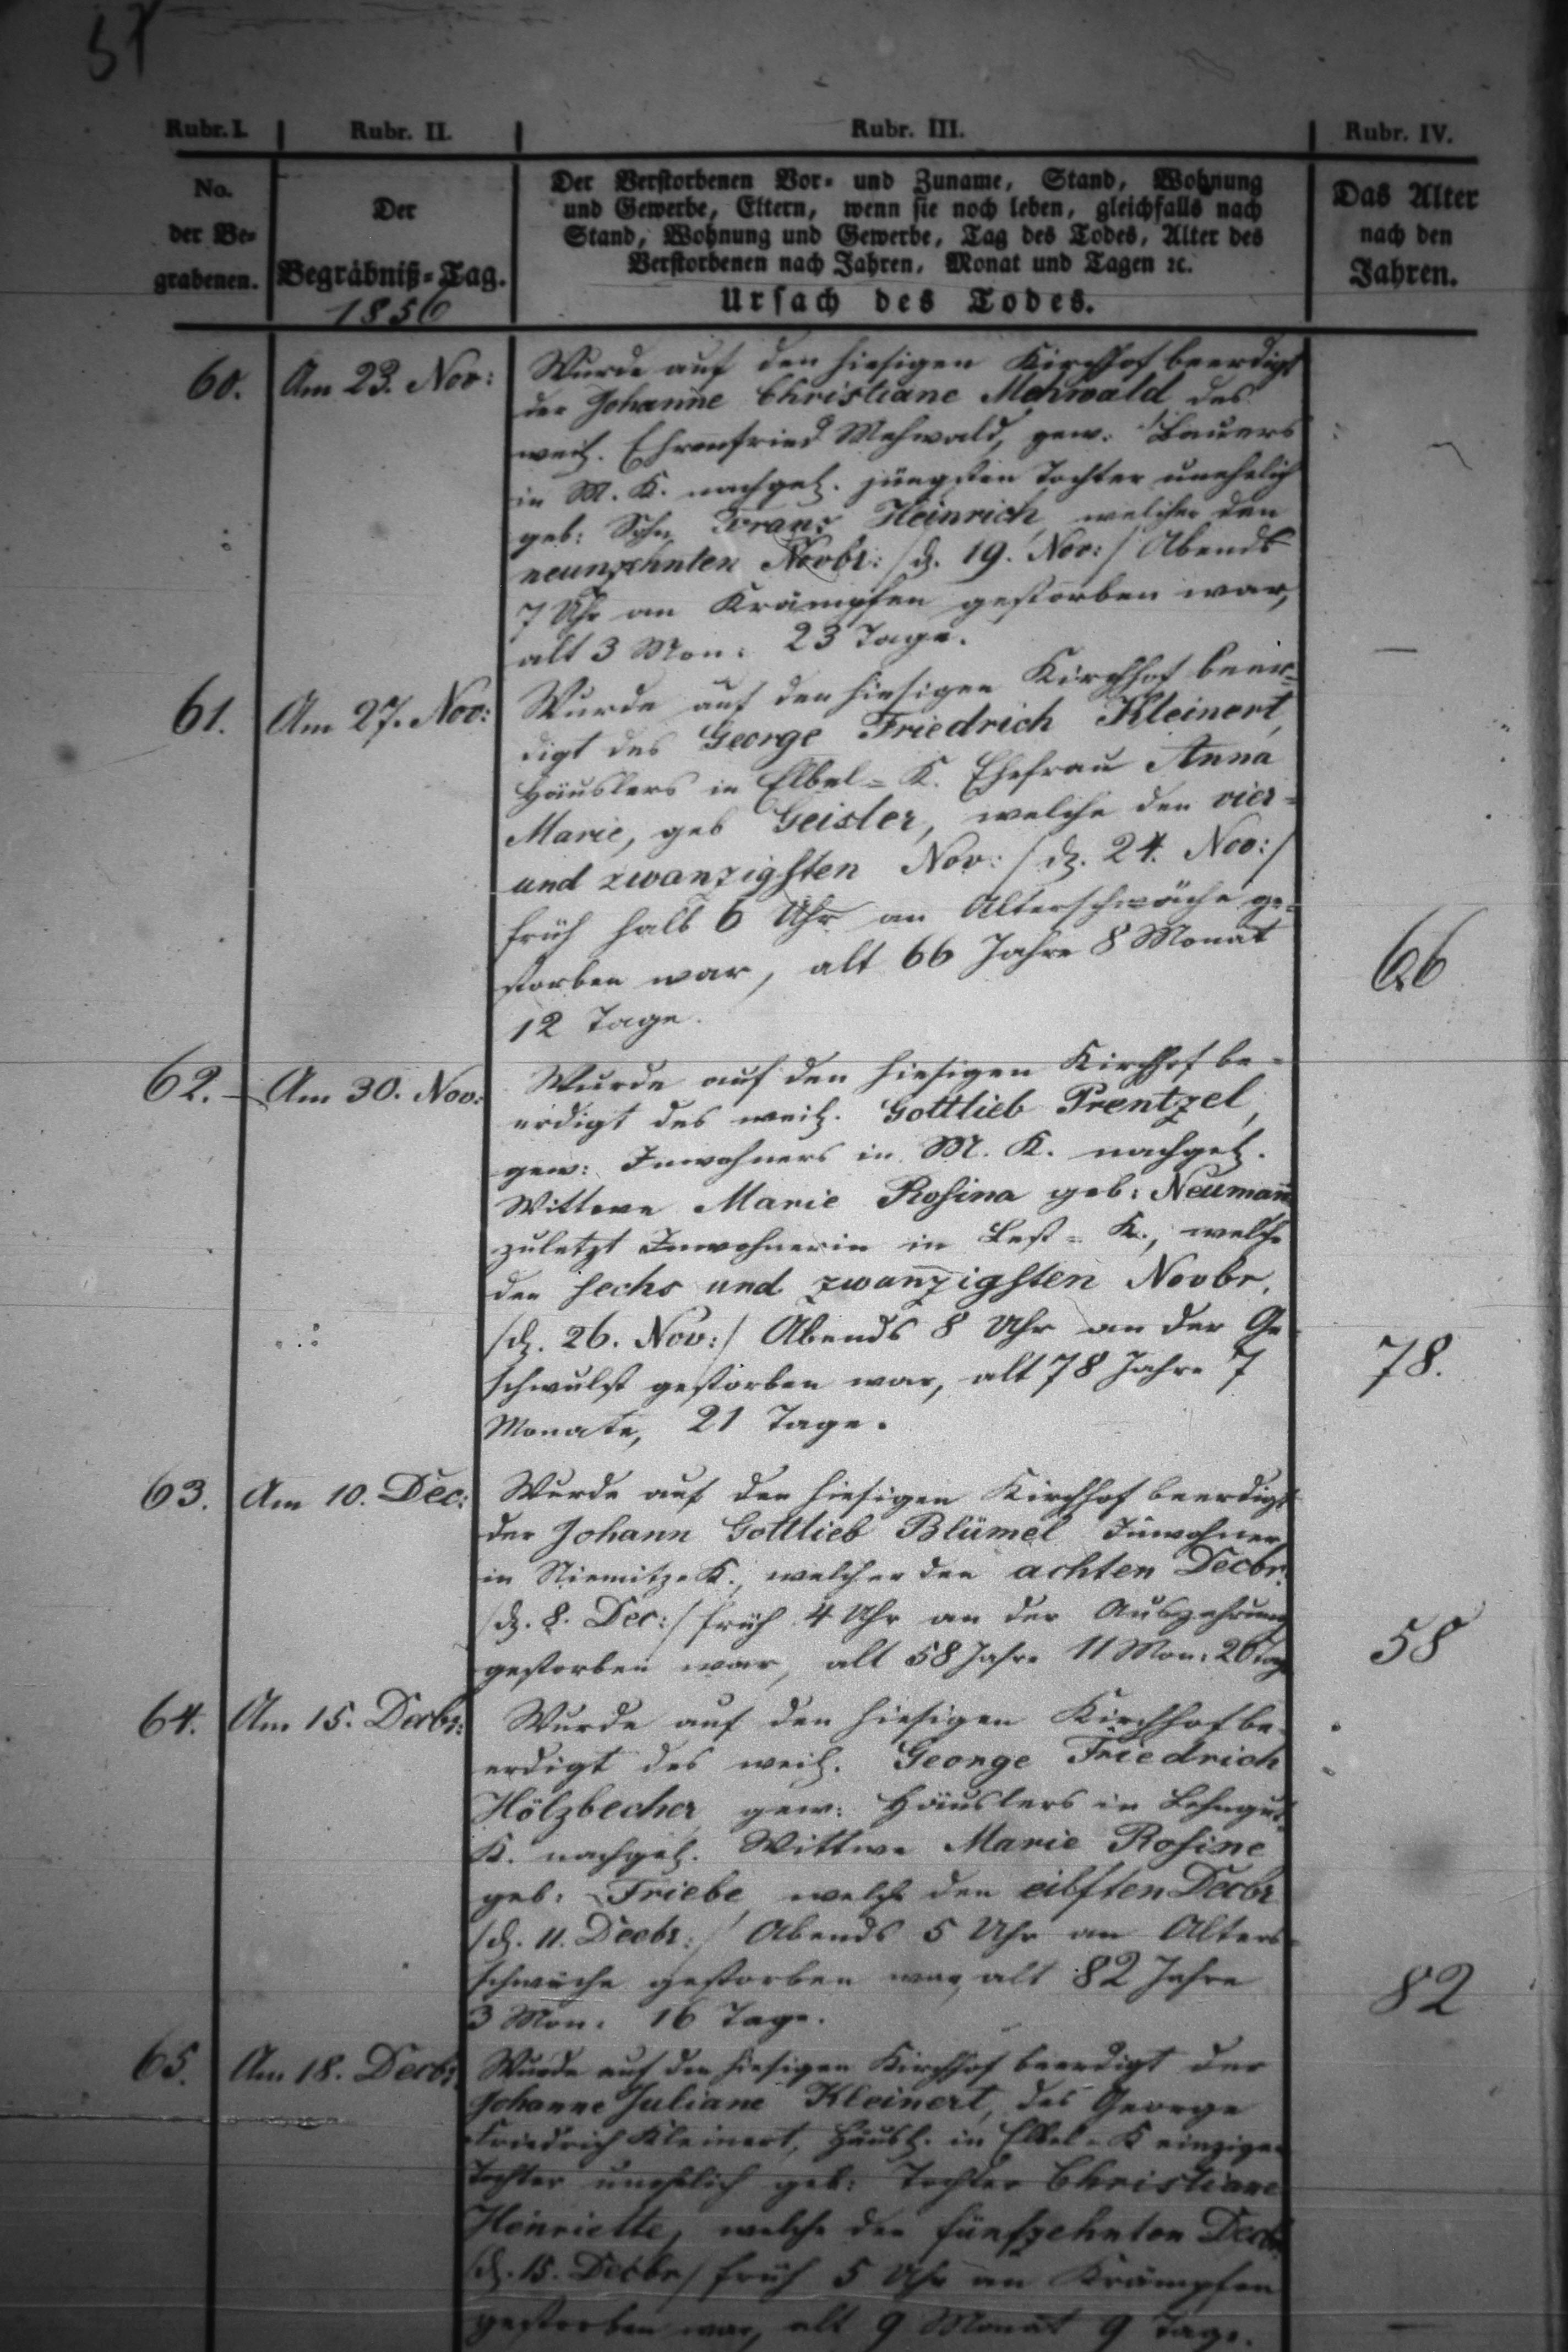 57
Rubr. I. Rubr. II. Rubr. III. Rubr. IV.
No. der Be- grabenen.
Der Begräbniß-Tag. 1856
Der Verstorbenen Vor- und Zuname, Stand, Wohnung
und Gewerbe, Eltern, wenn sie noch leben, gleichfalls nach
Stand, Wohnung und Gewerbe, Tag des Todes, Alter des
Verstorbenen nach Jahren, Monat und Tagen ꝛc.
Ursach des Todes.
Das Alter nach den Jahren.
60. Am 23. Nov: Wurde auf den hiesigen Kirchhof beerdigt
der Johanne Christiane Mehwald des
weil. Ehrenfried Mehwald, gew. Bauers
in M. K. nachgel. jüngsten Tochter unehelich
geb: Sohn Franz Heinrich, welcher den
neunzehnten Novbr: /d. 19. Nov:/ Abends
7 Uhr an Krämpfen gestorben war,
alt 3 Mon: 23 Tage. —
61. Am 27. Nov: Wurde auf den hiesigen Kirchhof beer-
digt des George Friedrich Kleinert,
Häuslers in Elbel-K. Ehefrau Anna
Marie, geb Geisler, welche den vier-
und zwanzigsten Nov: /d. 24. Nov:/
früh halb 6 Uhr an Alterschwäche ge-
storben war, alt 66 Jahre 8 Monat 66
12 Tage.
62. Am 30. Nov: Wurde auf den hiesigen Kirchhof be-
erdigt des weil. Gottlieb Prentzel,
gew: Inwohners in M. K. nachgel.
Wittwe Marie Rosina geb: Neumann
zuletzt Inwohnerin in Lest-K., welche
den sechs und zwanzigsten Novbr.
/d. 26. Nov:/ Abends 8 Uhr an der Ge-
schwulst gestorben war, alt 78 Jahre 7 78.
Monate, 21 Tage.
63. Am 10. Dec: Wurde auf den hiesigen Kirchhof beerdigt
der Johann Gottlieb Blümel Inwohner
in Niemitz-K., welcher den achten Decbr.
/d. 8. Dec:/ früh 4 Uhr an der Auszehrung
gestorben war, alt 58 Jahre 11 Mon: 20 Tage 58
64. Am 15. Decbr: Wurde auf den hiesigen Kirchhof be-
erdigt des weil. George Friedrich
Hölzbecher gew: Häuslers in Lehngut-
K. nachgel. Wittwe Marie Rosine
geb: Friebe, welche den eilften Decbr
/d. 11. Decbr:/ Abends 5 Uhr an Alters-
schwäche gestorben war, alt 82 Jahre 82
3 Mon: 16 Tage.
65. Am 18. Decbr: Wurde auf den hiesigen Kirchhof beerdigt der
Johanne Juliane Kleinert, des George
Friedrich Kleinert, Häusl. in Elbel-K einzigen
Tochter unehelich geb: Tochter Christiane
Henriette, welche den fünfzehnten Decbr.
/d. 15. Decbr/ früh 5 Uhr an Krämpfen
gestorben war, alt 9 Monat 9 Tage. —